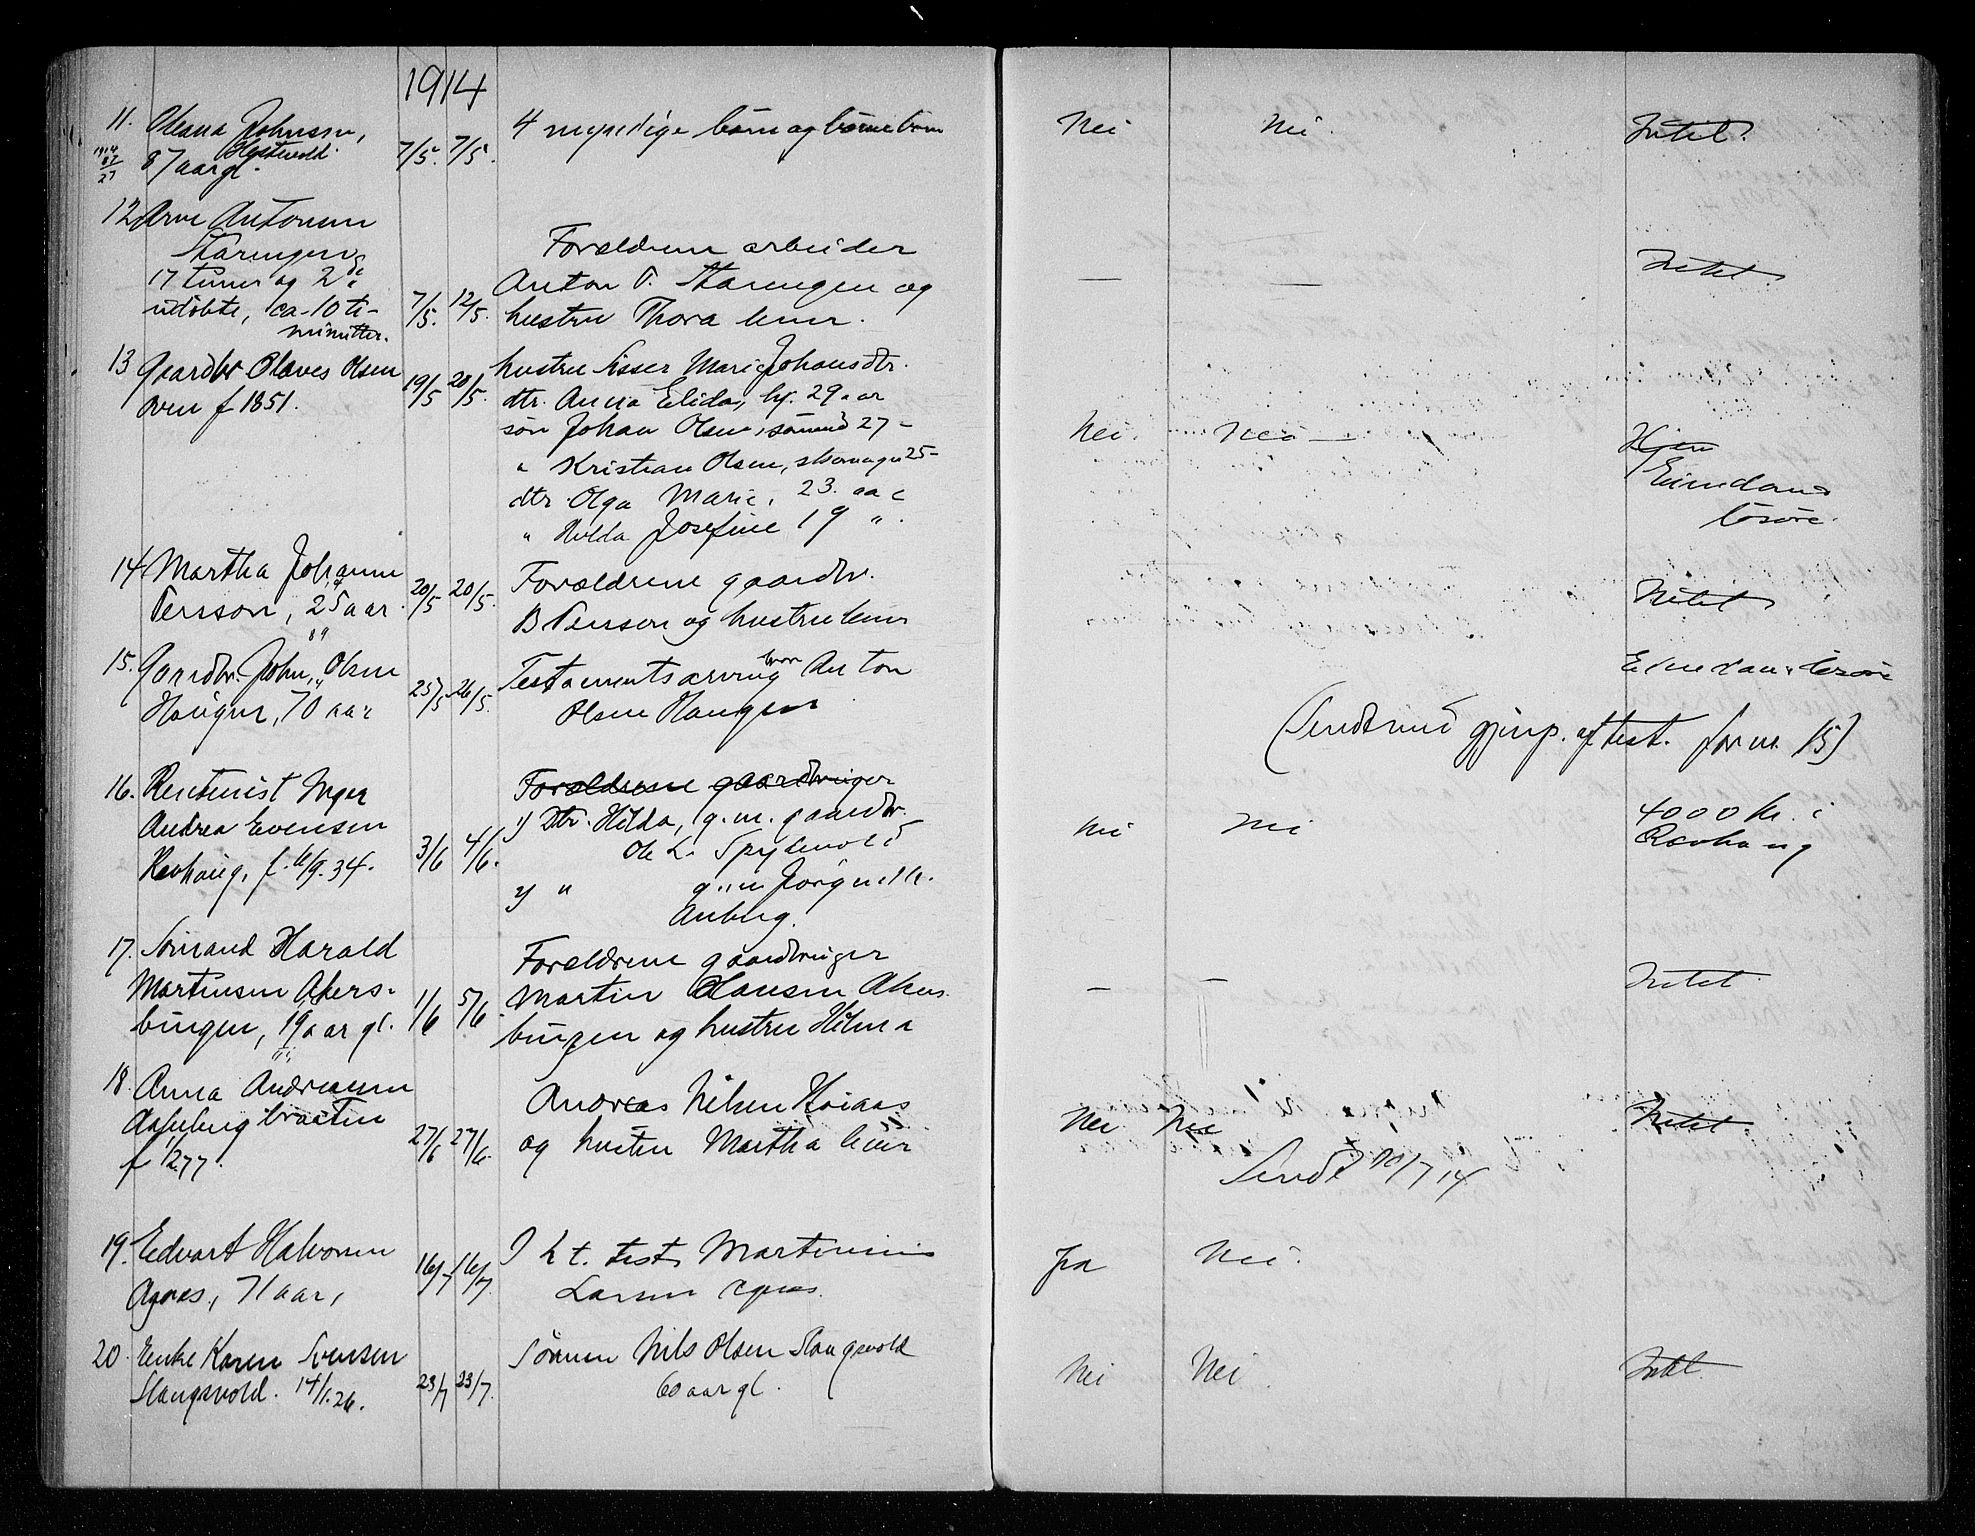 1914
11. Oleana Johnsen,
87 aar gl. 7/5. 7/5. 4 myndige børn og børnebørn Nei Nei. Intet.
1914
87
27
12 Arne Antonsen
Staringen
17 timer og 2de
udøbte, ca. 10 ti-
minutter. 7/5. 12/5.
Forældrene arbeider
Anton P. Staringen og
hustru Thora leve. — — Intet
13 Gaardbr Olaves Olsen
Oven f 1851. 19/5 20/5. hustru Sisser Marie Johansdtr.
dtr. Anna Elida, hj. 29 aar
søn Johan Olsen, sømand 27 – Nei. Nei — Hjem
" Kristian Olsen, skomager 25 – Eiendom
dtr. Olga Marie, 23. aar løsøre.
" Hilda Josefine 19 ".
14 Martha Johanne
Persson, 25 aar. 20/5 20/5. Forældrene gaardbr.
B Persson og hustru lever Intet
15. Gaardbr. John Olsen
Haugen, 70 aar 25/5 26/5. Testamentsarving bror Anton
Olsen Haugen Eiendom & løsøre
(Sendt med gjenp. af test. for nr. 15)
16. Rentenist Inger
Andrea Evensen
Revhaug, f. 6/9. 34. 3/6 4/6. Forældrene gaardbruger
1) Dtr. Hilda, g.m. gaardbr.
Ole L. Spydevold Nei Nei 4000 kr. i
Revhaug
2) " g.m.
17. Sømand Harald
Martinsen Akers-
bingen, 19 aar gl. 1/6 5/6. Forældrene gaardbruger
Martin Hansen Akers
bingen og hustru Hilma – – Intet.
18. Anna Andreasen
f 1/2 77. 27/6 27/6. Andreas Nilsen
og hustru Martha lever Nei Nei Intet.
Sendt 20/7 14
19. Edvart Halvorsen
Agnæs, 71 aar, 16/7 16/7. I h. t. test. Martinius
Larsen Agnæs. Ja Nei.
20. Enke Karen Svensen
Slangsvold. 14/1. 26. 23/7 23/7. Sønnen Nils Olsen Slangsvold
60 aar gl. Nei Nei. Intet.